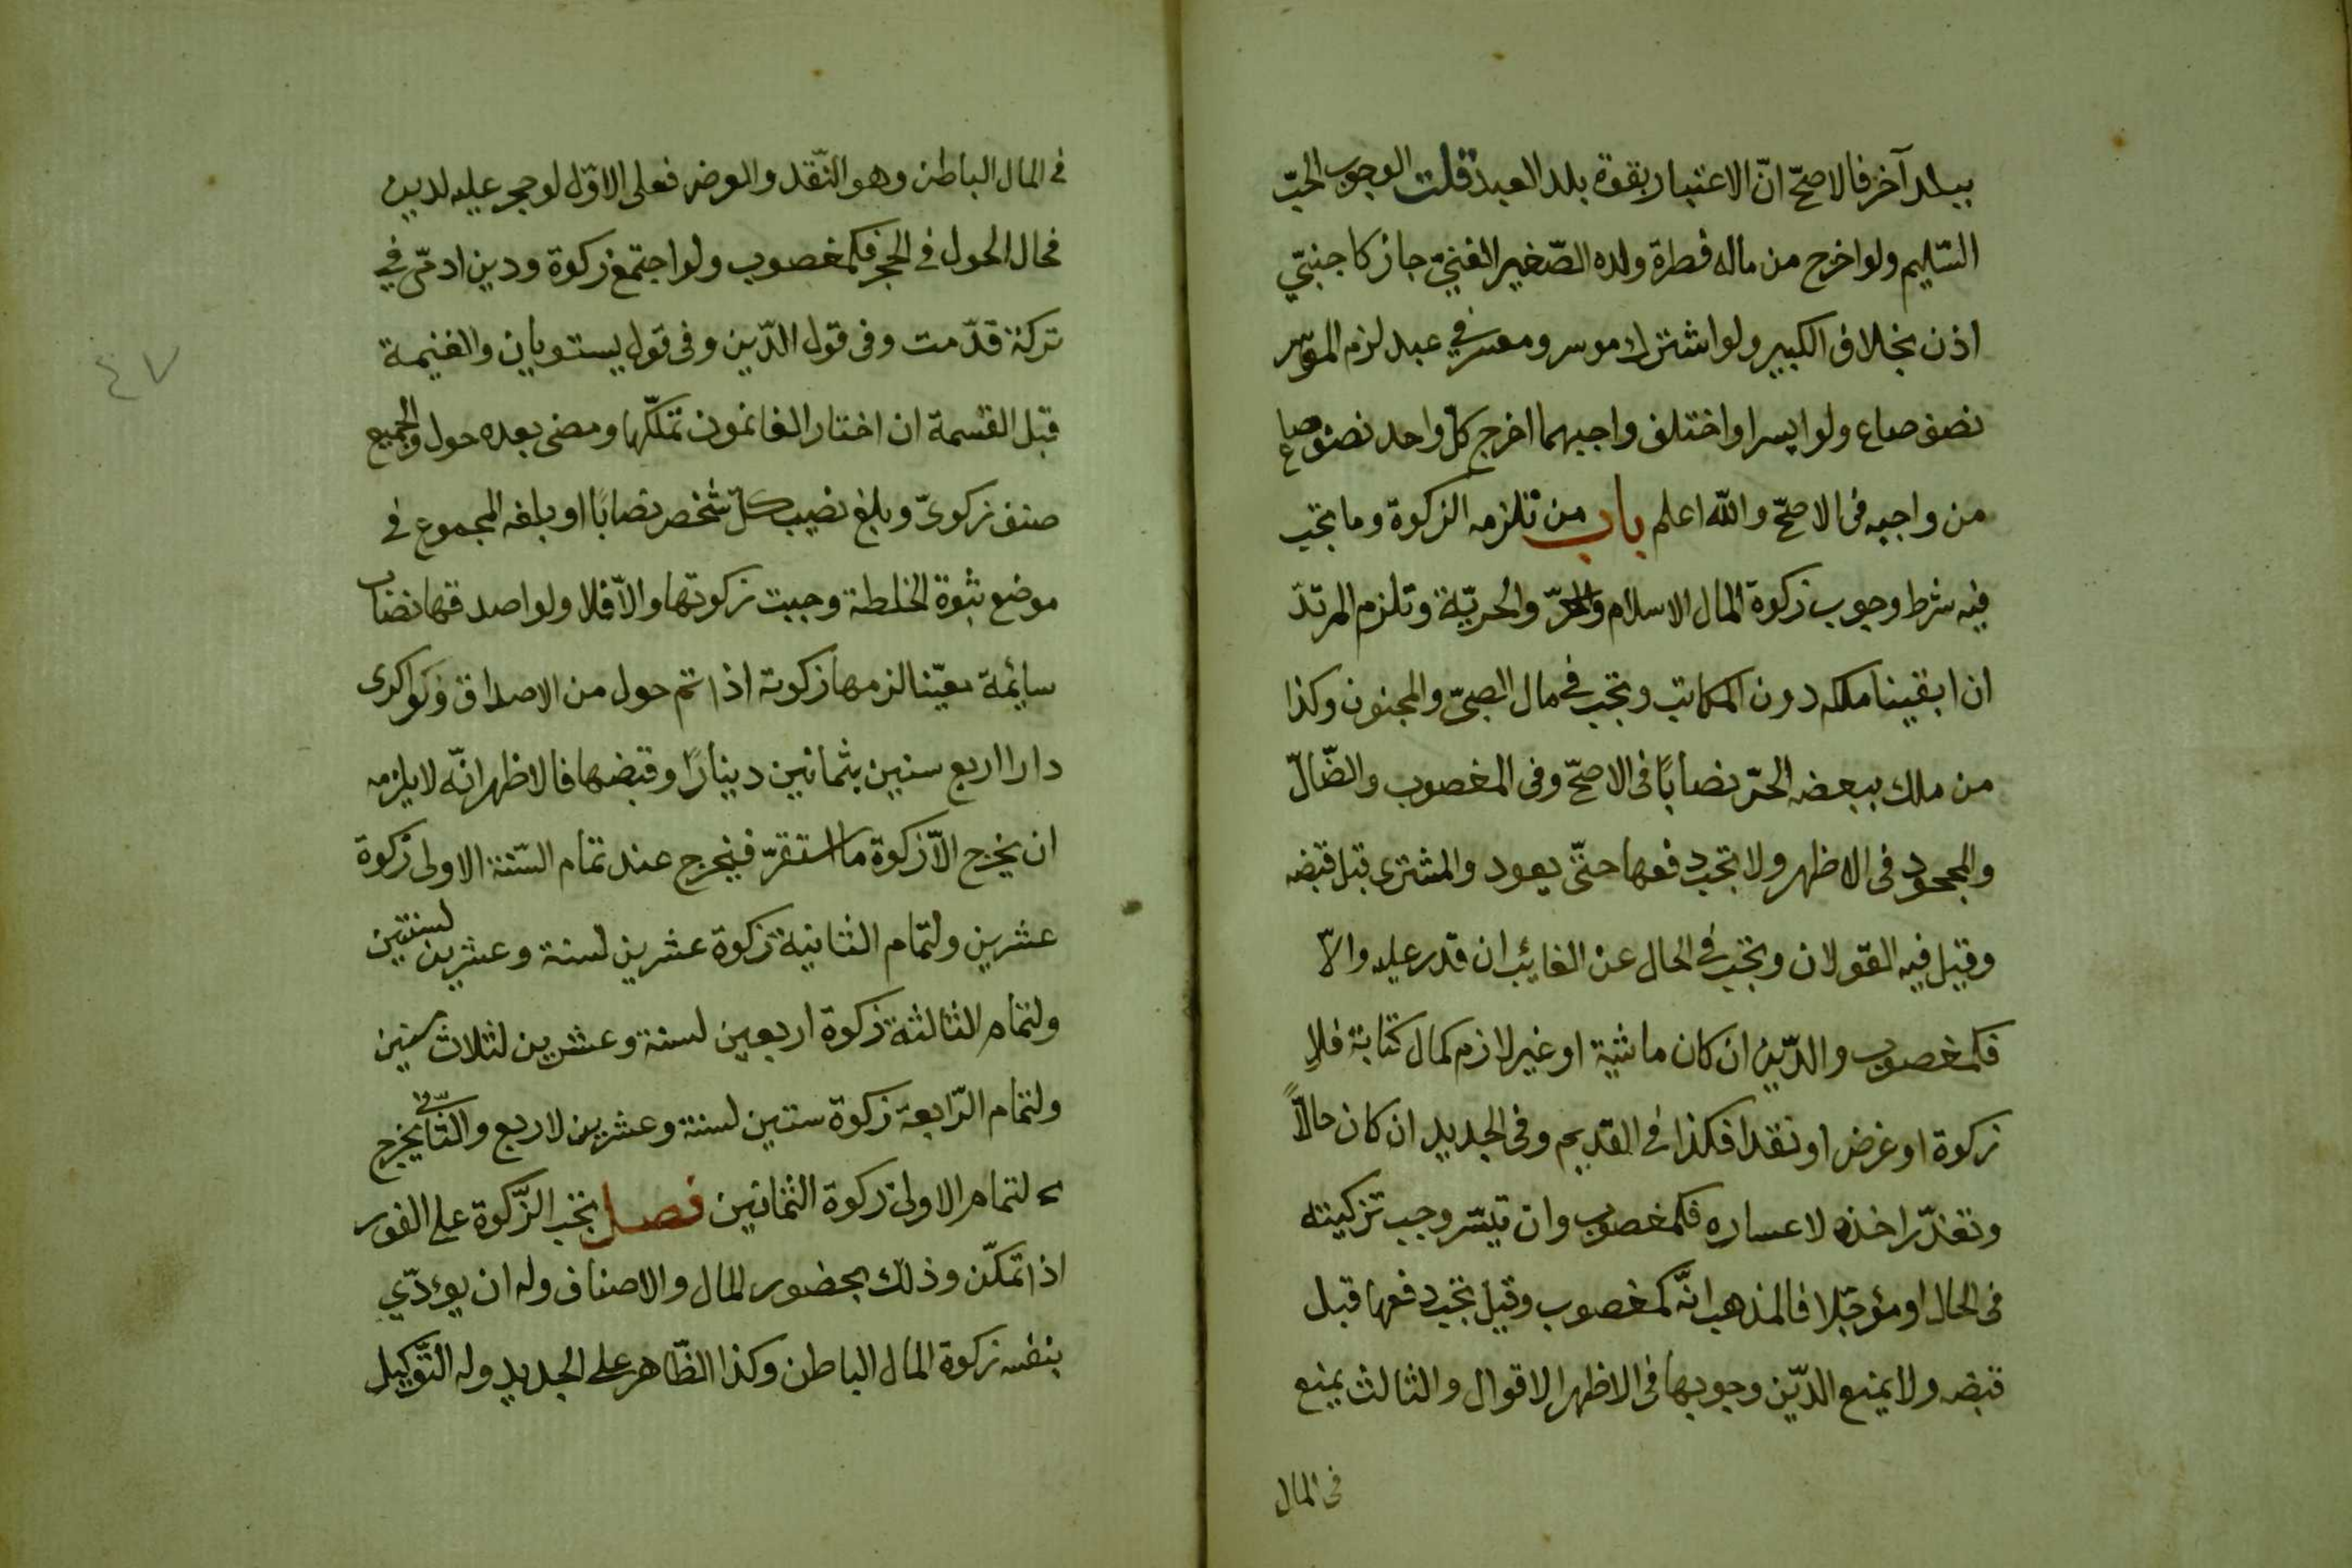 ببلد آخر فالاصحّ انّ الاعتبار بقوة بلد العبد قلت الوجوب الحبّ
السّليم ولو اخرج من ماله فطرة ولده الصّغير الغنيّ جاز كاجنبيّ
اذن بخلاف الكبير ولو اشترك موسر ومعسر في عبد لزم الموسر
نصف صاع ولو ايسرا واختلف واجبهما اخرج كلّ واحد نصف صاع
من واجبه فى الاصحّ والله اعلم باب من تلزمه الزكوة وما تجب
فيه شرط وجوب زكوة المال الاسلام والحرّ والحريّة وتلزم المرتدّ
ان ابقينا ملكه دون المكاتب وتجب في مال الصبىّ والمجنون وكذا
من ملك ببعضه الحرّ نصابًا فى الاصحّ وفى المغصوب والضّالّ
والمجحود فى الاظهر ولا تجب دفعها حتّى يعود والمشترى قبل قبضه
وقيل فيه القولان وتجب في الحال عن الغائب ان قدر عليه والّا
فكمغصوب والدّين ان كان ماشية او غير لازم كمال كتابة فلا
زكوة او عرض او نقدا فكذا في القديم وفى الجديد ان كان حالًّا
وتعذّر اخذه لاعساره فكمغصوب وان تيسّر وجب تزكيته
فى الحال او مؤجّلا فالمذهب انّه كمغصوب وقيل تجب دفعها قبل
قبضه ولا يمنع الدّين وجوبها فى الاظهر الاقوال والثالث يمنع
فى المال
في المال الباطن وهو النّقد والعرض فعلى الاوّل لو حجر عليه لدين
فحال الحول في الحجر فكمغصوب ولو اجتمع زكوة ودين ادمّى في
تركة قدّمت وفى قول الدّين وفى قول يستويان والغنيمة
قبل القسمة ان اختار الغانمون تملّكها ومضى بعده حول والجميع
صنف زكوىّ وبلغ نصيب كلّ شخص نصابًا او بلغه المجموع في
موضع ثبوة الخلطة وجبت زكوتها والّا فلا ولو اصدقها نصاب
سائمة معيّنا لزمها زكوته اذا تم حول من الاصداق ولو اكرى
دارا اربع سنين بثمانين دينارًا وقبضها فالاظهر انّه لا يلزمه
ان يخرج الّا زكوة ما استقرّ فيخرج عند تمام السّنة الاولى زكوة
عشرين ولتمام الثانية زكوة عشرين لسنة وعشرين لسنتين
ولتمام الثالثة زكوة اربعين لسنة وعشرين لثلاث سنين
ولتمام الرّابعة زكوة ستين لسنة وعشرين لاربع والثّانى يخرج
لتمام الاولى زكوة الثمانين فصل تجب الزّكوة على الفور
اذا تمكّن وذلك بحضور المال والاصناف وله ان يؤدّي
بنفسه زكوة المال الباطن وكذا الظّاهر على الجديد وله التّوكيل
٤٧